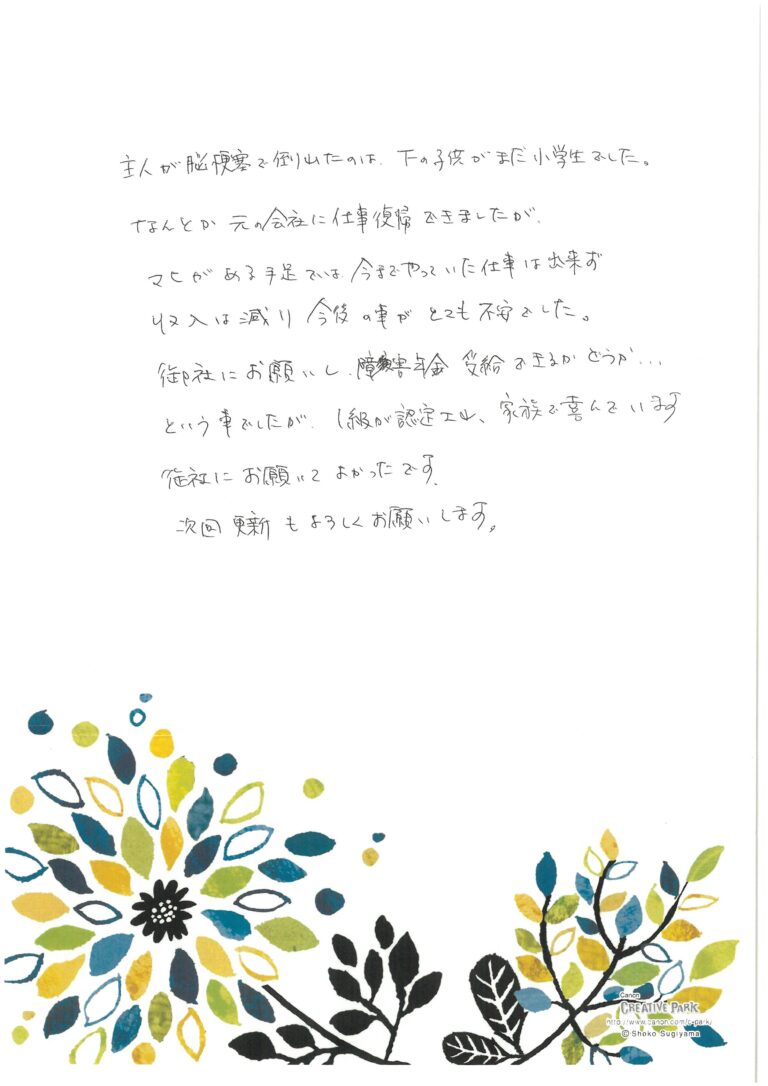 主人が脳梗塞で倒れたのは、下の子供がまだ小学生でした。
なんとか元の会社に仕事復帰できましたが、
マヒがある手足では、今までやっていた仕事は出来ず
収入は減り今後の事がとても不安でした。
御社にお願いし、障害年金受給できるかどうか…
という事でしたが、1級が認定され、家族で喜んでいます
御社にお願いしてよかったです。
次回更新もよろしくお願いします。
Canon
CREATIVE PARK
http://www.canon.com/c-park/
© Shoko Sugiyama